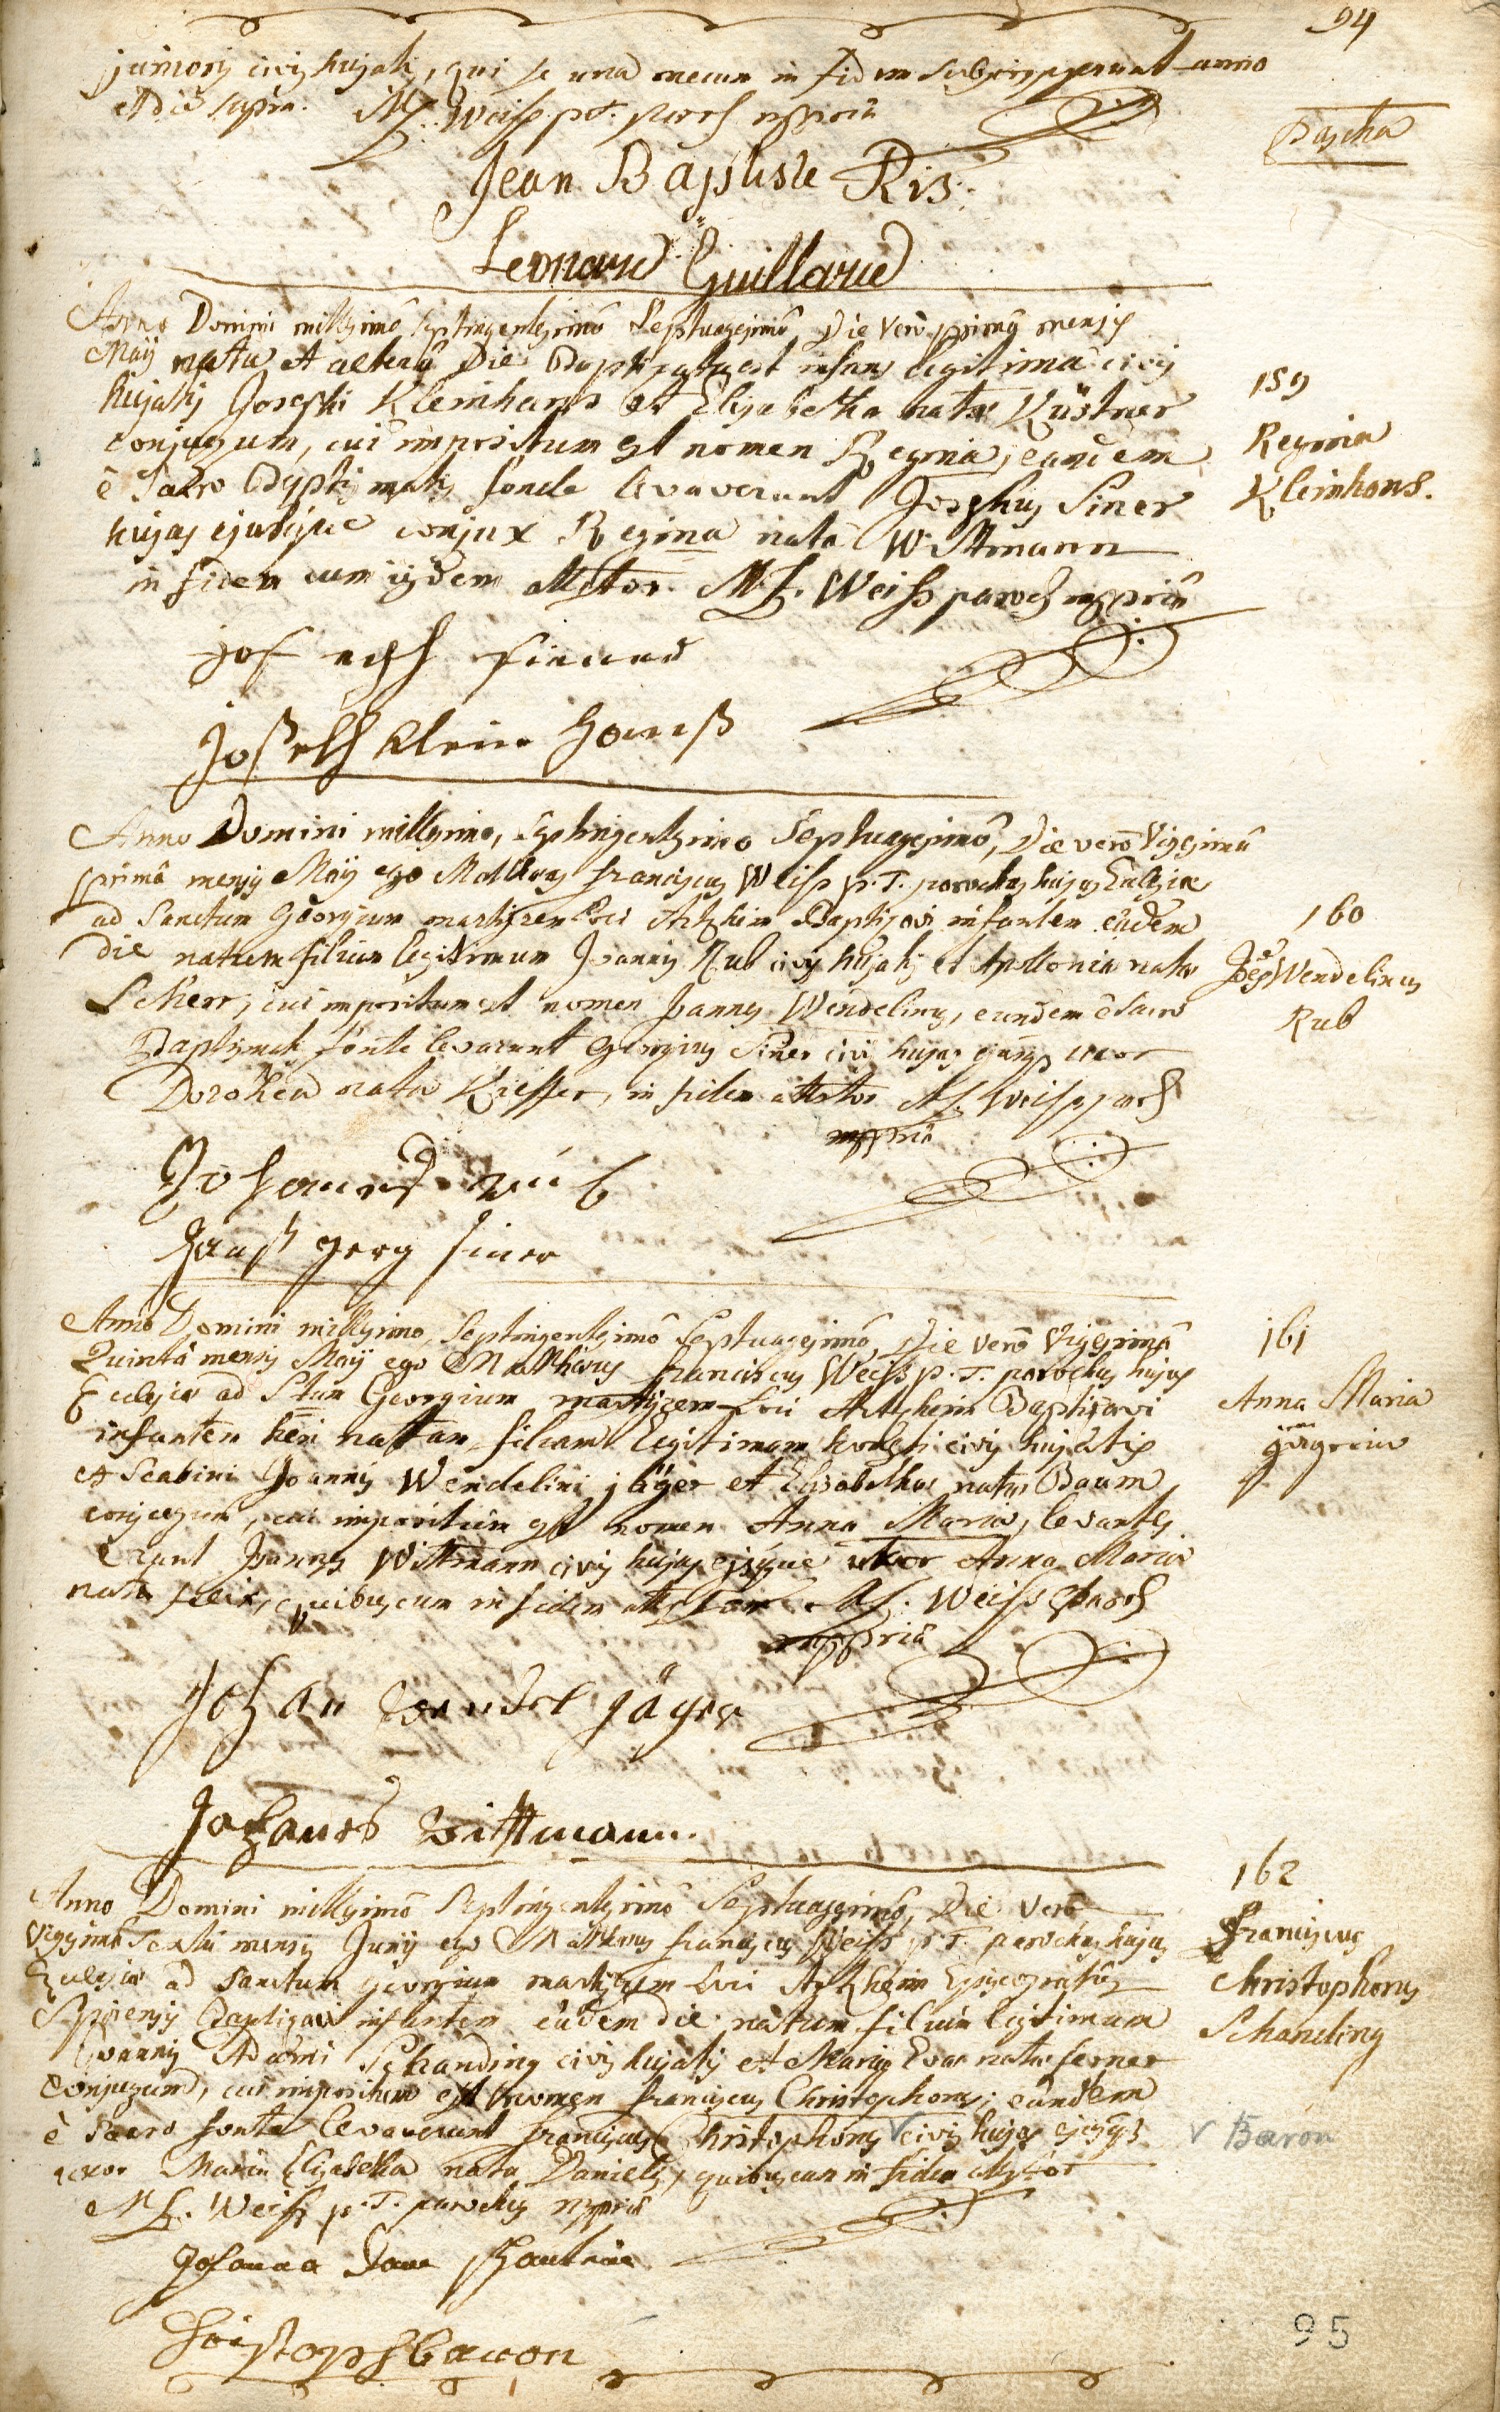 94
junioris civis hujatis, qui se una mecum in fidem subscripserunt anno
et die supra. M. F. Weiss p.T. paroch mppriâ
Pascha
Jean Baptiste Ris
Leonard Guillard
Anno Domini millesimô septingentesimô Septuagesimô, Die verô primâ mensis
Maÿ nata et alterâ Die Baptizata est infans legitima civis
hujatis Josephi Kleinhans et Elisabetha nata Küstner
conjugum, cui impositum est nomen Regina, eandem
è Sacro Baptismatis fonte levaverunt Josephus Siner
hujas ejusque conjux Regina nata Wittmann
in fidem cum iisdem attestor. M. F. Weiss paroch mppriâ
159
Regina
Kleinhans.
joseph siener
Joseph klein hanß
Anno Domini millesimo, septingentesimo Septuagesimô, Die verô Vigesimâ
primâ mensis Maÿ ego Mathæus franciscus Weiss p.T. parochus hujus Ecclesiæ
ad Sanctum Georgium martyrem loci Artzheim Baptizavi infantem eâdem
die natum filium legitimum Joannis Rub civis hujatis et Apollonia nata
Scherr, cui impositum est nomen Joannes Wendelinus, eundem è sacro
Baptismatis fonte levarunt Georgius Siner civis hujas ejusque uxor
Dorothea nata Kieffer, in fidem attestor M. F. Weiss paroch
mppriâ
160
Joês Wendelinus
Rub
Johannes rüb
Hanß georg siner
Anno Domini millesimo, Septingentesimô Septuagesimô, Die verô Vigesimâ
Quintâ mensis Maÿ ego Mathæus franciscus Weiss p.T. parochus hujus
Ecclesiæ ad Stum Georgium martyrem loci Artzheim Baptizavi
infantem heri natam, filiam legitimam honesti civis hujatis
et Scabini Joannis Wendelini jäger et Elisabethæ natæ Baum
conjugum, cui impositum est nomen Anna Maria, levantes
erant Joannes Wittmann civis hujas ejusque uxor Anna Maria
nata feix, quibuscum in fidem attestor M. F. Weiss Paroch
mppriâ
161
Anna Maria
jägerin
Johan wendel jäger
Johanes wittmann.
Anno Domini millesimô Septingentesimô Septuagesimô, Die verô
Vigesimâ Sextâ mensis Junÿ ego Mathæus franciscus Weiss p.T. parochus hujus
Ecclesiæ ad Sanctum georgium martyrem loci Artzheim Episcopatûs
Spirensis Baptizavi infantem eâdem die natum filium legitimum
Joannis Adami Schanding civis hujatis et Mariæ Evæ natæ ferner
Conjugum, cui impositum est nomen franciscus Christophorus; eundem
è Sacro fonte levaverunt franciscus Christophorus √ civis hujas ejusque
uxor Maria Elisabetha nata Daniels, quibuscum in fidem attestor
M. F. Weiss p.T. parochus mppriâ
162
Franciscus
Christophorus
Schanding
√ Baron
Christoph baron
95